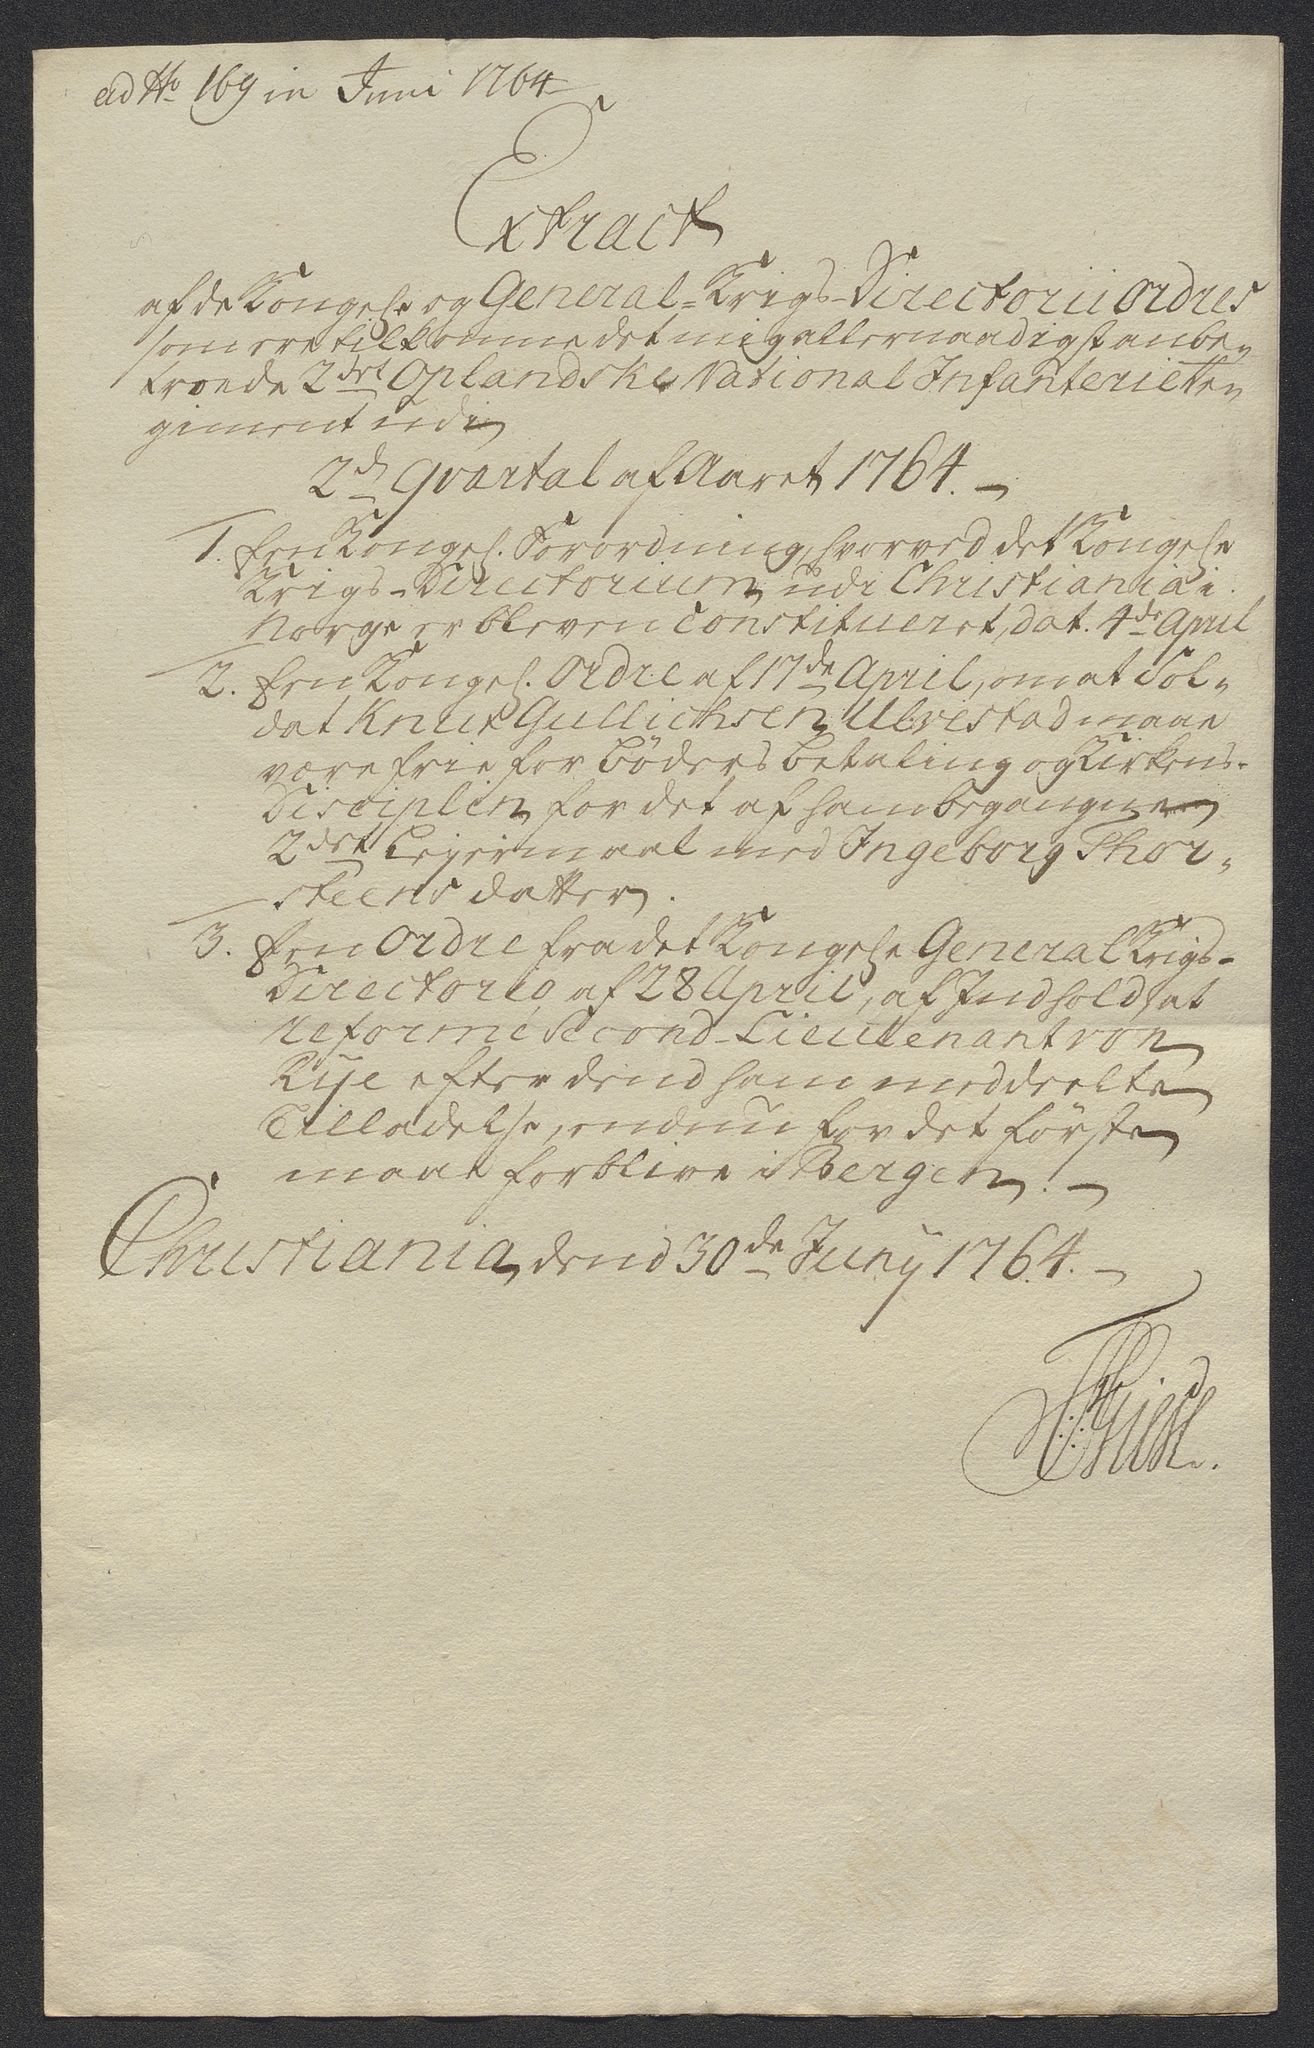 ad No 169 in Juni 1764
Extract
af de Kongelse og General-Krigs-Directorii Ordres
som ere tilkomne det mig allernaadigst anbe-
troede 2det Oplandske National Infanterie Re-
giment udi
2det Qvartal af Aaret 1764.
1. Een Kongel. Forordning, hvorved det Kongelse
Krigs-Directorium udi Christiania i
Norge er bleven constitueret, dat. 4de April
2. Een Kongel. Ordre af 17de April, om at Sol-
dat Knut Gullichsen Ulvestad maae
være frie for Bøders betaling og Kirkens-
Disciplin for det af ham begangne
2det Leyermaal med Ingeborg Thor-
steens datter.
3. Een Ordre fra det Kongelse General Krigs-
Directorio af 28 April, af Indhold, at
reformé Second-Lieutenant von
Rije efter dend ham meddeelte
Tilladelse, endnu for det første
maae forblive i Bergen.
Christiania, dend 30de Junij 1764.